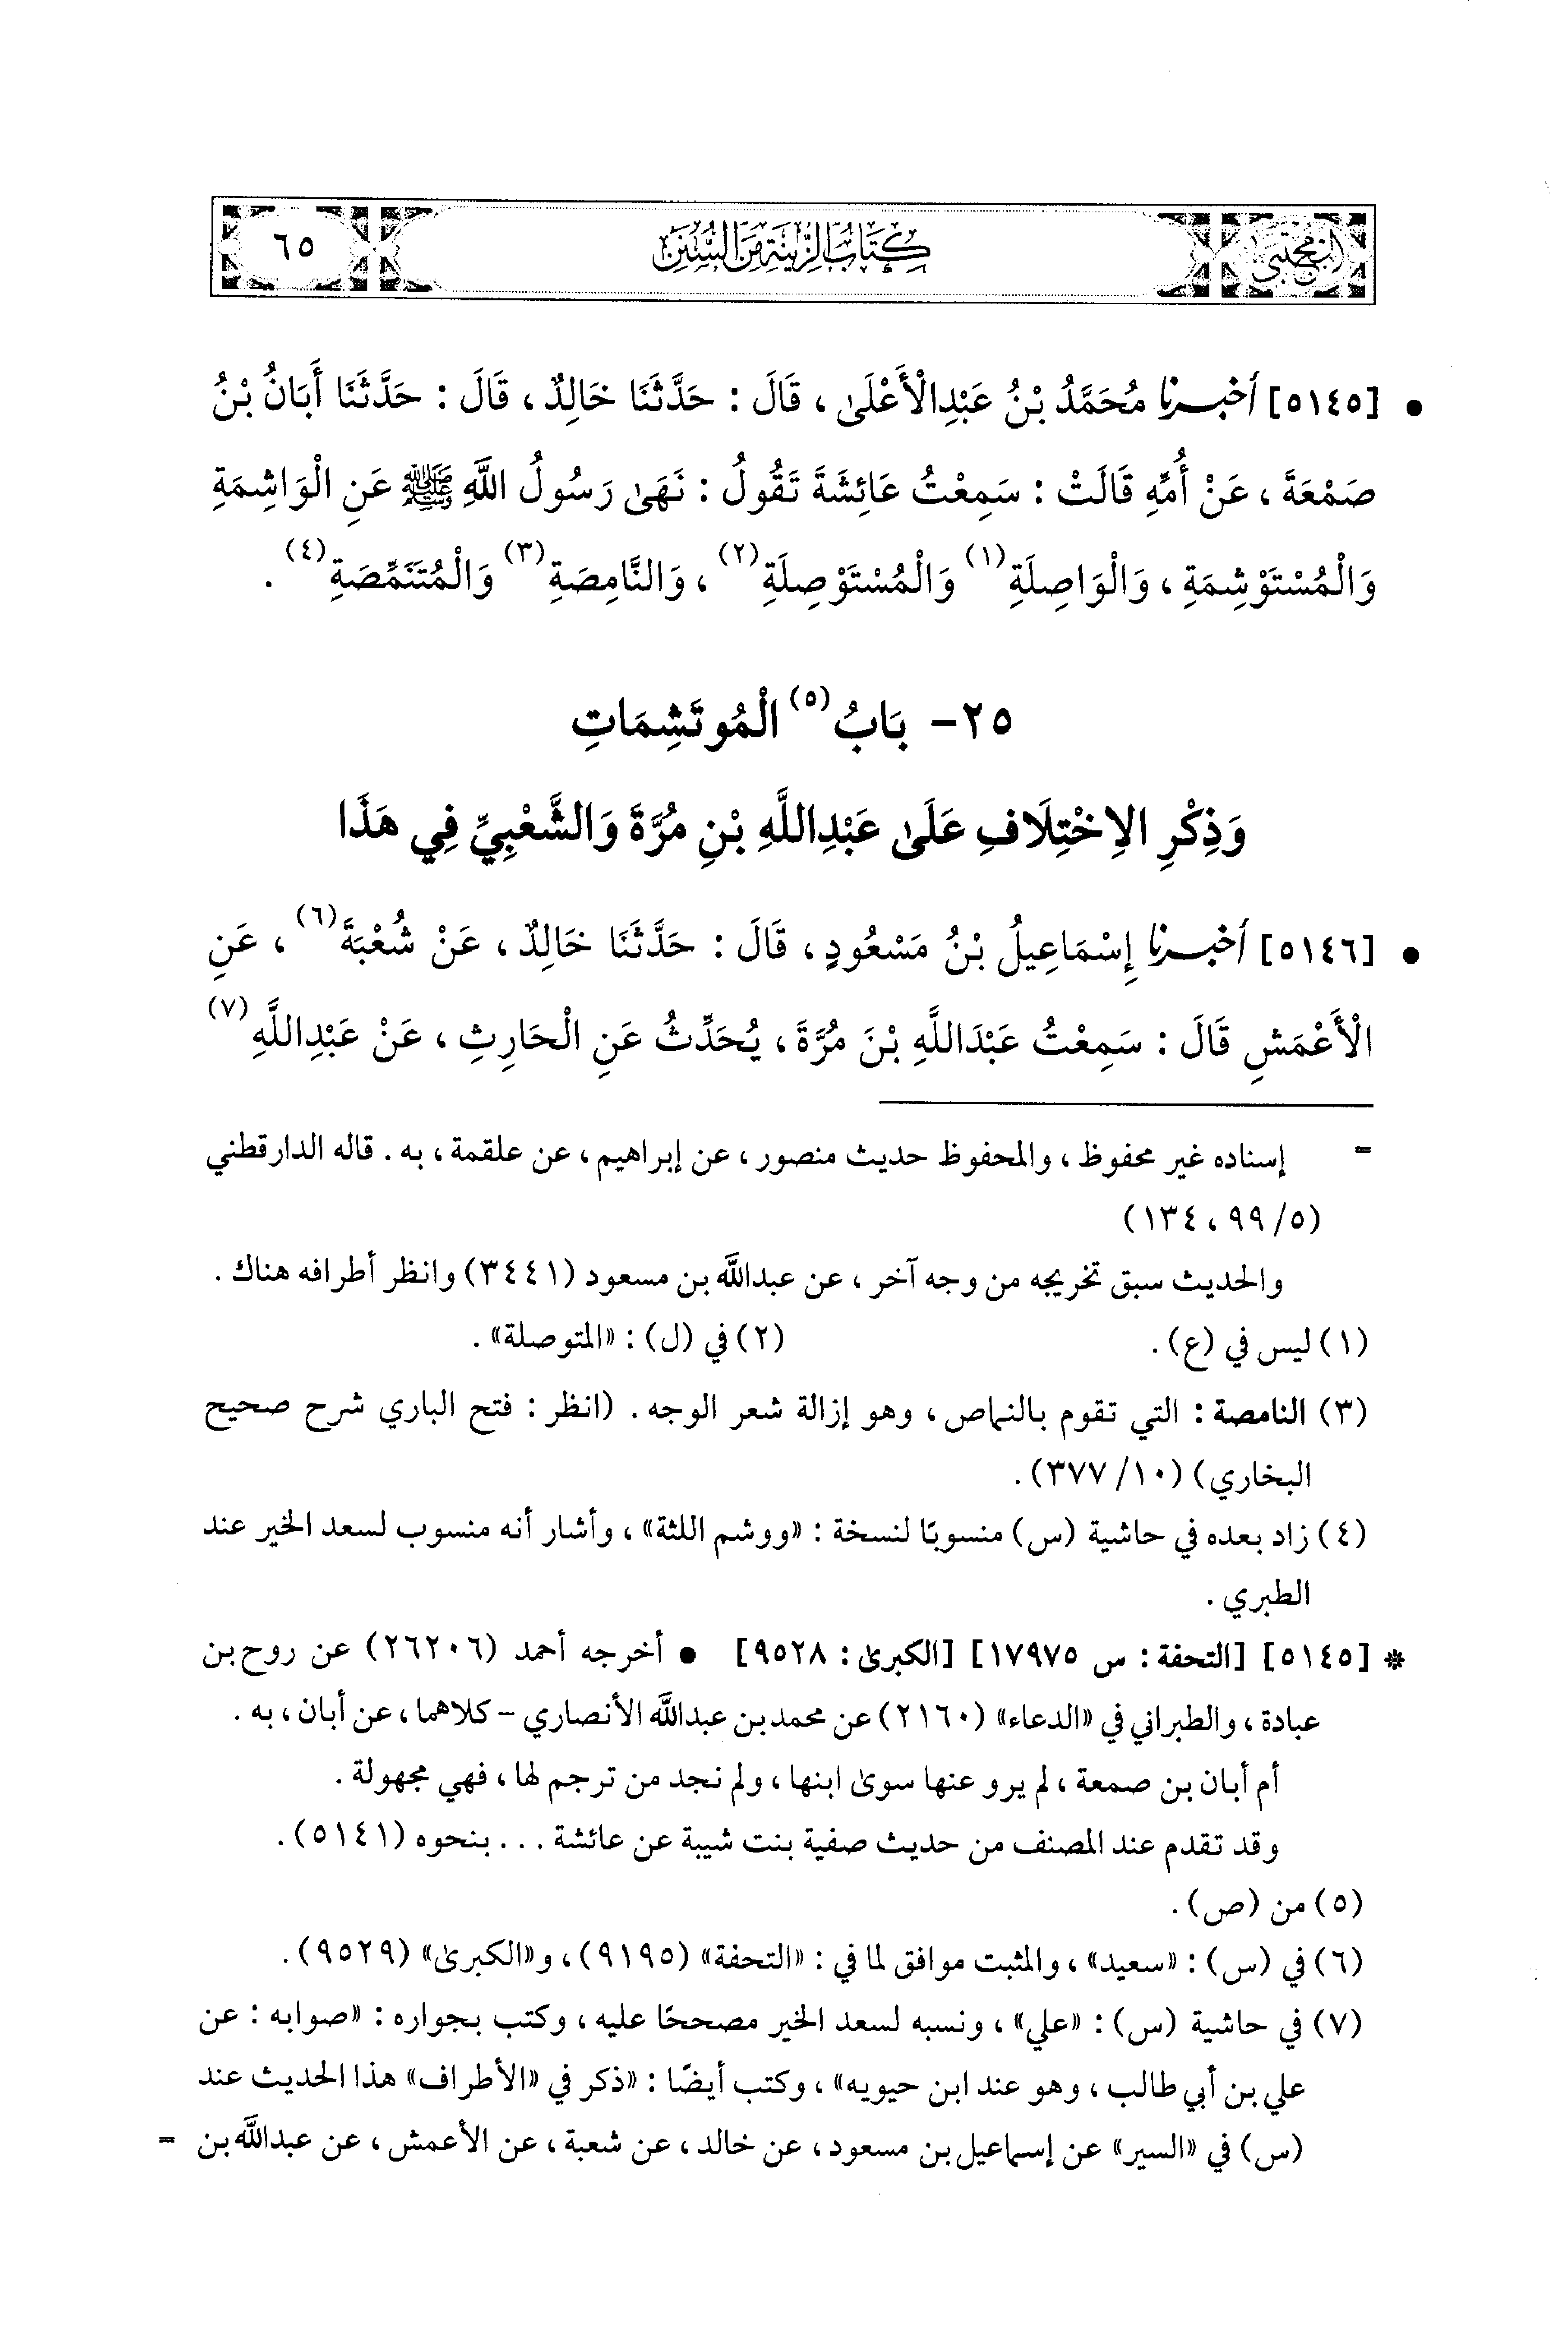 المجتبى
كِتَابُ الزِّينَةِ مِنَ السُّنَنِ
٦٥
• [٥١٤٥] أخبرنا مُحَمَّدُ بْنُ عَبْدِالْأَعْلَىٰ ، قَالَ : حَدَّثَنَا خَالِدٌ ، قَالَ : حَدَّثَنَا أَبَانُ بْنُ
صَمْعَةَ ، عَنْ أُمِّهِ قَالَتْ : سَمِعْتُ عَائِشَةَ تَقُولُ : نَهَىٰ رَسُولُ اللَّهِ ﷺ عَنِ الْوَاشِمَةِ
وَالْمُسْتَوْشِمَةِ ، وَالْوَاصِلَةِ(١) وَالْمُسْتَوْصِلَةِ(٢) ، وَالنَّامِصَةِ(٣) وَالْمُتَنَمِّصَةِ(٤) .
٢٥- بَابُ(٥) الْمُوتَشِمَاتِ
وَذِكْرِ الِاخْتِلَافِ عَلَىٰ عَبْدِاللَّهِ بْنِ مُرَّةَ وَالشَّعْبِيِّ فِي هَذَا
• [٥١٤٦] أخبرنا إِسْمَاعِيلُ بْنُ مَسْعُودٍ ، قَالَ : حَدَّثَنَا خَالِدٌ ، عَنْ شُعْبَةَ(٦) ، عَنِ
الْأَعْمَشِ قَالَ : سَمِعْتُ عَبْدَاللَّهِ بْنَ مُرَّةَ ، يُحَدِّثُ عَنِ الْحَارِثِ ، عَنْ عَبْدِاللَّهِ(٧)
= إسناده غير محفوظ ، والمحفوظ حديث منصور ، عن إبراهيم ، عن علقمة ، به . قاله الدارقطني
(٥/ ٩٩ ، ١٣٤)
والحديث سبق تخريجه من وجه آخر ، عن عبدالله بن مسعود (٣٤٤١) وانظر أطرافه هناك .
(١) ليس في (ع) . (٢) في (ل) : «المتوصلة» .
(٣) النامصة : التي تقوم بالنماص ، وهو إزالة شعر الوجه . (انظر : فتح الباري شرح صحيح
البخاري) (١٠/ ٣٧٧) .
(٤) زاد بعده في حاشية (س) منسوبًا لنسخة : «ووشم اللثة» ، وأشار أنه منسوب لسعد الخير عند
الطبري .
* [٥١٤٥] [التحفة : س ١٧٩٧٥] [الكبرىٰ : ٩٥٢٨] • أخرجه أحمد (٢٦٢٠٦) عن روح بن
عبادة ، والطبراني في «الدعاء» (٢١٦٠) عن محمد بن عبدالله الأنصاري - كلاهما ، عن أبان ، به .
أم أبان بن صمعة ، لم يرو عنها سوىٰ ابنها ، ولم نجد من ترجم لها ، فهي مجهولة .
وقد تقدم عند المصنف من حديث صفية بنت شيبة عن عائشة . . . بنحوه (٥١٤١) .
(٥) من (ص) .
(٦) في (س) : «سعيد» ، والمثبت موافق لما في : «التحفة» (٩١٩٥) ، و«الكبرىٰ» (٩٥٢٩) .
(٧) في حاشية (س) : «علي» ، ونسبه لسعد الخير مصححًا عليه ، وكتب بجواره : «صوابه : عن
علي بن أبي طالب ، وهو عند ابن حيويه» ، وكتب أيضًا : «ذكر في «الأطراف» هذا الحديث عند
(س) في «السير» عن إسماعيل بن مسعود ، عن خالد ، عن شعبة ، عن الأعمش ، عن عبدالله بن =